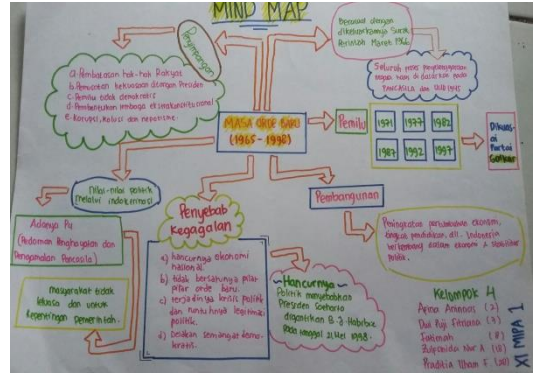 MIND MAP
Penyimpangan
a. Pembatasan hak-hak Rakyat
b. Pemusatan kekuasaan ditangan Presiden
c. Pemilu tidak demokratis
d. Pembentukan lembaga ekstrakonstitusional
e. Korupsi, kolusi dan nepotisme.
Berawal dengan
dikeluarkannya Surat
Perintah Maret 1966
Seluruh proses penyelenggaraan
negara harus di dasarkan pada
PANCASILA dan UUD 1945
MASA ORDE BARU
(1965 - 1998)
Pemilu
1971
1977
1982
1987
1992
1997
Dikuas-
ai
Partai
Golkar
Nilai-nilai politik
melalui indoktrinasi
Adanya P4
(Pedoman Penghayatan dan
Pengamalan Pancasila)
masyarakat tidak
leluasa dan untuk
kepentingan pemerintah.
Penyebab
Kegagalan
a) hancurnya ekonomi
nasional.
b) tidak bersatunya pilar
pilar orde baru.
c) terjadinya krisis politik
dan runtuhnya legitimasi
politik.
d) Desakan semangat demo-
kratis.
Hancurnya
Politik menyebabkan
Presiden Soeharto
digantikan B.J. Habibie
pada tanggal 21 Mei 1998.
Pembangunan
Peningkatan pertumbuhan ekonomi,
tingkat pendidikan, dll. Indonesia
berkembang dalam ekonomi & stabilitas
politik.
Kelompok 4
(2)
Dwi Puji Fitriana (7)
Fatimah
Praditia Ilham F.
XI MIPA 1